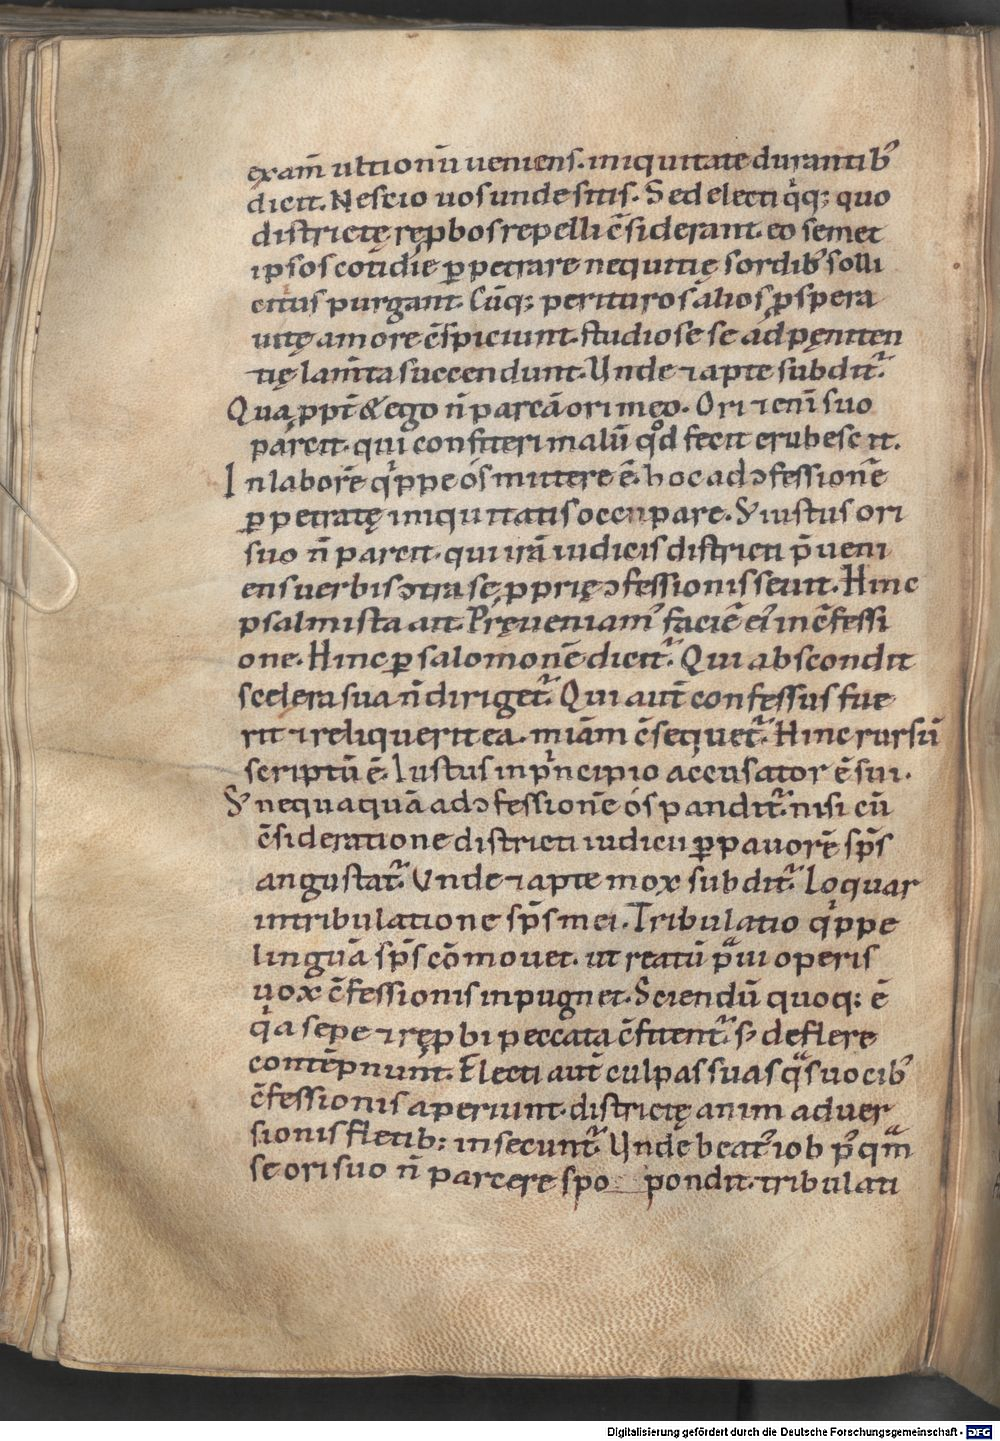 exam̄ ultionū ueniens. iniquitate durantib᷒
dicit. Nescio uos unde sitis. Sed electi q̇q; quo
districtę rep̱bos repelli c̄siderant. eo semet
ipsos cotidie ꝑpetrare nequitię sordib᷒ solli
citius purgant. Cūq; perituros alios ꝓspera
uitę amore c̄spiciunt. studiose se ad pęniten
tię lam̄ta succendunt. Unde ⁊ apte subdit᷑.
Qua ꝓpt̄ & ego n̄ parcā ori meo. Ori ⁊enī suo
parcit. qui confiteri malū qd̊ fecit erubescit.
In laborē q̇ppe os mittere ē. hoc ad ↄfessionē
ꝑpetratę iniquitatis occupare. S; iustus ori
suo n̄ parcit. qui irā iudicis districti p̄ueni
ens uerbis ↄtra se ꝓprię ↄfessionis seuit. Hinc
psalmista ait. Pręueniam᷒ faciē ei᷒ in c̄fessi
one. Hinc ꝑ salomonē dicit᷑. Qui abscondit
scelera sua n̄ diriget᷑. Qui aut̄ confessus fue
rit ⁊ reliquerit ea. miām c̄sequet᷑. Hinc rursū
scriptū ē. Iustus in pͥncipio accusator ē sui.
S; nequaquā ad ↄfessionē os pandit᷑. nisi cū
c̄sideratione districti iudicii ꝑ pauorē sp̄s
angustat᷑. Unde ⁊ apte mox subdit᷑. Loquar
in tribulatione sp̄s mei. Tribulatio q̇ppe
linguā sp̄s cōmouet. ut reatū pᵃui operis
uox c̄fessionis inpugnet. Sciendū quoq; ē
q̇a sepe ⁊ reꝓbi peccata c̄fitent᷑. s; deflere
contēpnunt. Electi aut̄ culpas suas qᵃs uocib᷒
c̄fessionis aperiunt. districtę anim aduer
sionis fletib; insecunt᷑. Unde beat᷒ iob p᷒qᵃm
se ori suo n̄ parcere spo pondit. tribulati
Digitalisierung gefördert durch die Deutsche Forschungsgemeinschaft - DFG